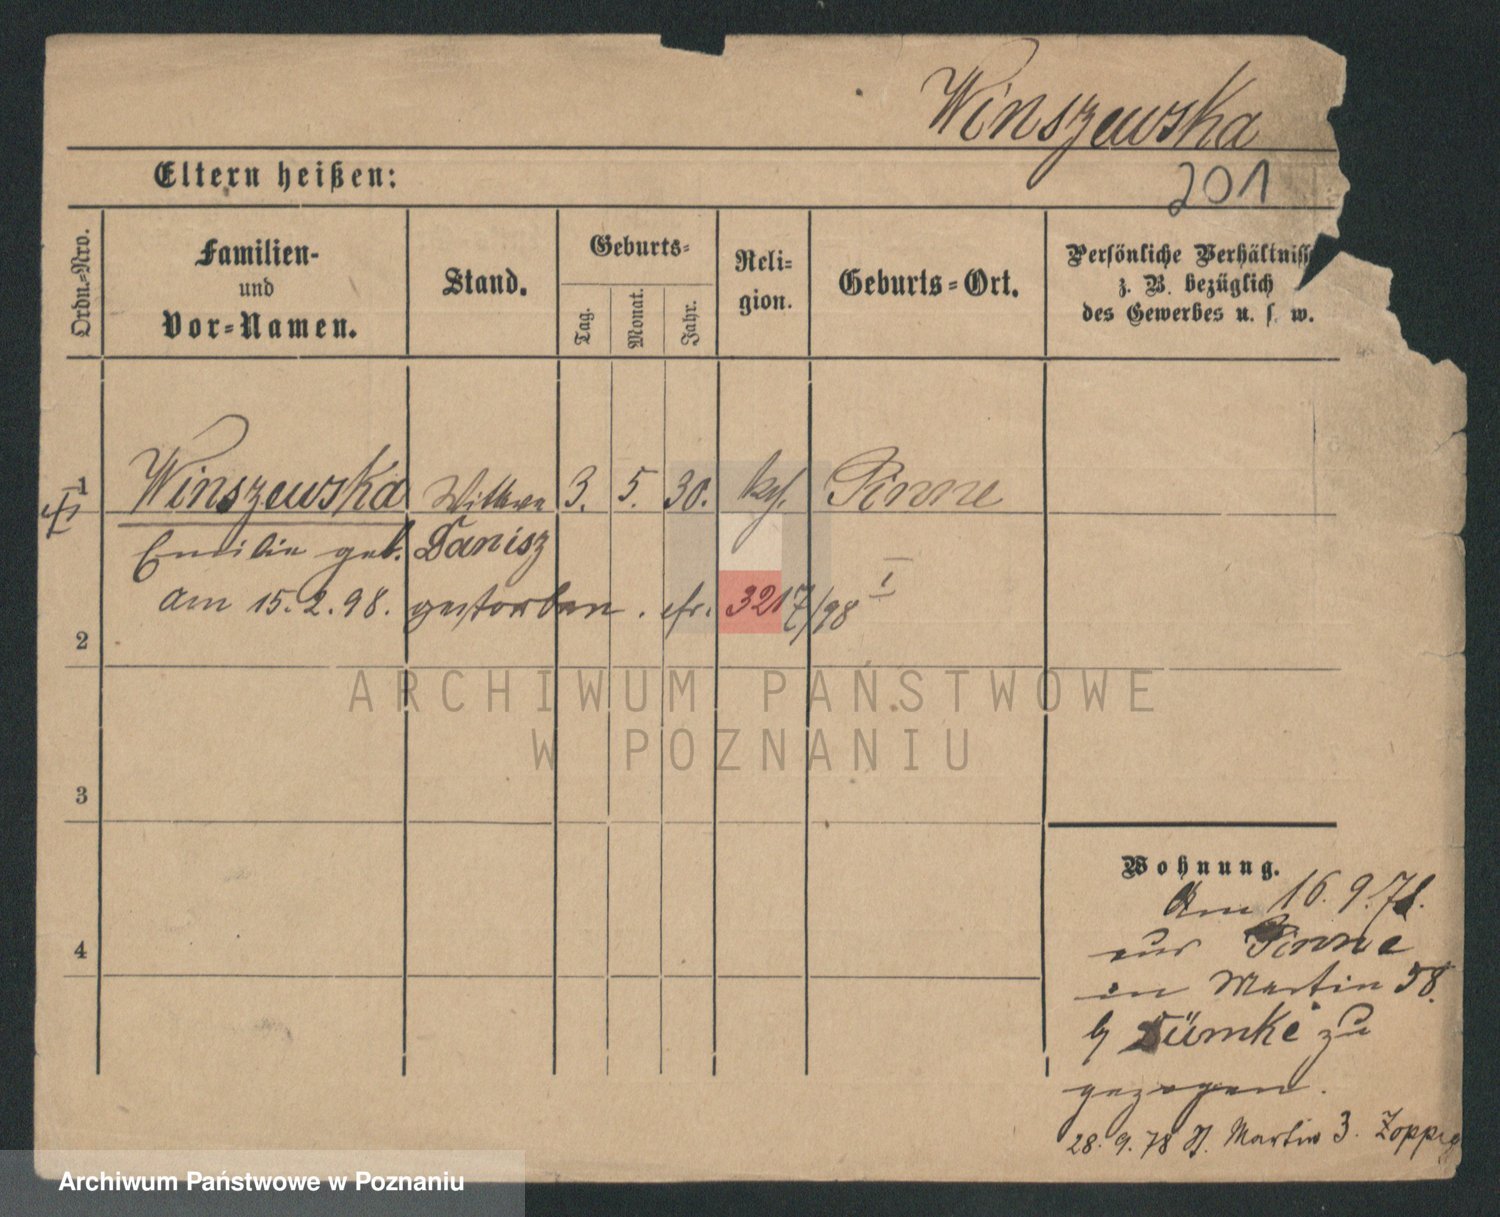 Winszewska
201
Eltern heißen:
Ordn.-Nro.
Familien-
und
Vor-Namen.
Stand.
Geburts-
Tag.
Monat.
Jahr.
Reli-
gion.
Geburts-Ort.
Persönliche Verhältniss
z. B. bezüglich
des Gewerbes u. s. w.
1 Winszewska Wittwe 3. 5. 30. kath. Pinne
Emilie geb. Danisz
am 15. 2. 98. gestorben. 3217/98 I
2
3
4
Wohnung.
Am 16. 9. 78.
aus Pinne
in Martin 58.
b/ Dümke zu
gezogen.
28. 9. 78 St. Martin 3. Zoppig
ARCHIWUM PAŃSTWOWE
W POZNANIU
Archiwum Państwowe w Poznaniu